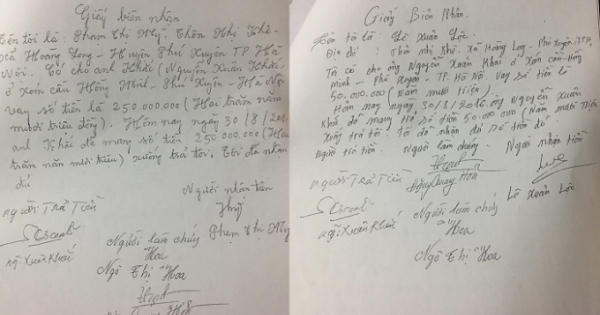 Giấy biên nhận
Tên tôi là: Phạm Thị Mỹ. Thôn Nhị Khê-
xã Hoàng Long - Huyện Phú Xuyên TP Hà
Nội. Có cho anh Khải (Nguyễn Xuân Khải)
ở xóm cầu Hồng Minh - Phú Xuyên - Hà Nội
vay số tiền là 250.000.000 (Hai trăm năm
mươi triệu đồng). Hôm nay ngày 30/8/20
anh Khải đã mang số tiền 250.000.000 (Hai
trăm năm mươi triệu) xuống trả tôi. Tôi đã nhận
đủ
Người nhận tiền
Người Trả Tiền
Mỹ
Phạm Thị Mỹ
Người làm chứng
Hoa
Ngô Thị Hoa
Giấy Biên Nhận
Tên tôi là: Lê Xuân Lộc.
Địa chỉ: Thôn Nhị Khê. xã Hoàng Long - Phú Xuyên
Tôi có cho ông Nguyễn Xuân Khải ở xóm cầu - Hồng
minh - Phú Xuyên - TP. Hà Nội. vay số tiền là
50.000.000 (năm mươi triệu)
Hôm nay ngày 30/8/2016 ông Nguyễn Xuân
Khải đã mang số tiền 50.000.000 (Năm mươi triệu
xuống trả tôi. tôi đã nhận đủ số tiền đó.
Người trả tiền. Người làm chứng. Người nhận tiền
Người Trả Tiền
Đặng Quang Hoà
Lê Xuân Lộc
Người làm chứng
Hoa
Ngô Thị Hoa